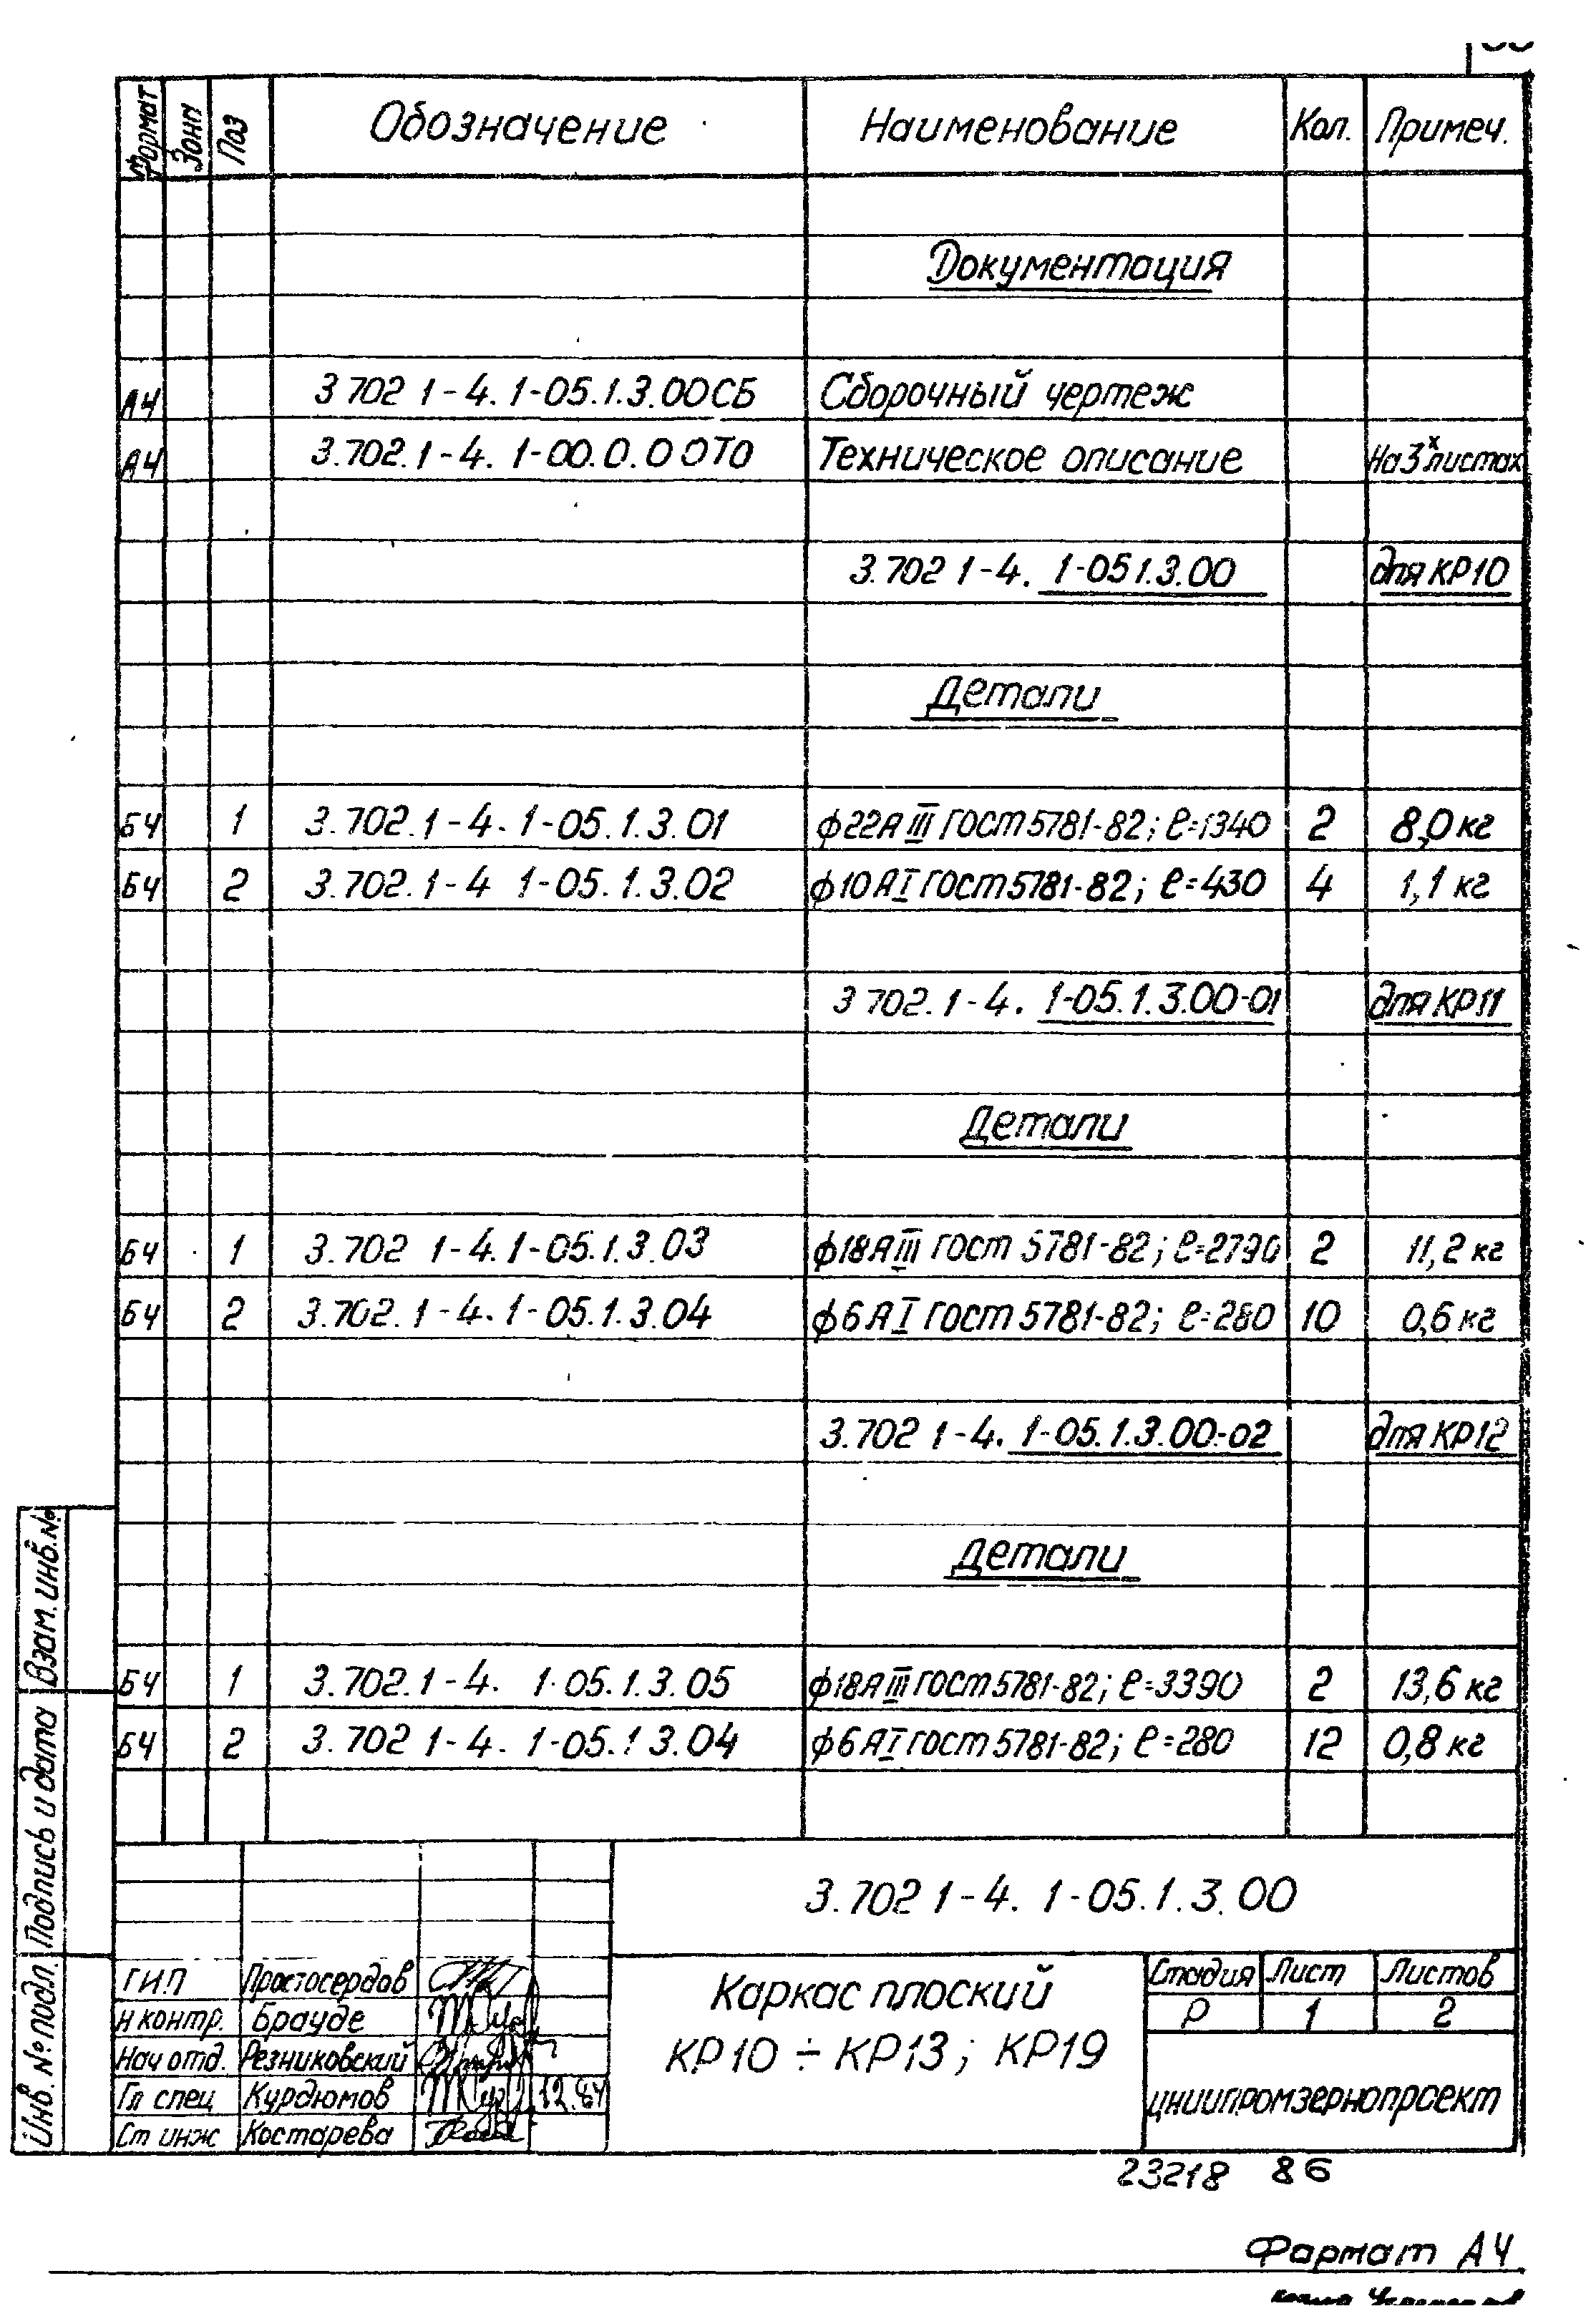 Формат Зона Поз Обозначение Наименование Кол. Примеч.
Документация
А4 3.702 1-4. 1-05.1.3.00СБ Сборочный чертеж
А4 3.702.1-4. 1-00.0.00ТО Техническое описание На 3х листах
3.702 1-4. 1-05 1.3.00 для КР10
Детали
БЧ 1 3.702.1-4. 1-05.1.3.01 ф22АIII ГОСТ 5781-82; ℓ=1340 2 8,0 кг
БЧ 2 3.702.1-4 1-05.1.3.02 ф10АI ГОСТ 5781-82; ℓ=430 4 1,1 кг
3 702.1-4. 1-05.1.3.00-01 для КР11
Детали
БЧ 1 3.702 1-4.1-05.1.3.03 ф18АIII ГОСТ 5781-82; ℓ=2790 2 11,2 кг
БЧ 2 3.702.1-4.1-05.1.3.04 ф6АI ГОСТ 5781-82; ℓ=280 10 0,6 кг
3.702 1-4. 1-05.1.3.00-02 для КР12
Детали
БЧ 1 3.702.1-4. 1-05.1.3.05 ф18АIII ГОСТ 5781-82; ℓ=3390 2 13,6 кг
БЧ 2 3.702 1-4. 1-05.1 3.04 ф6АI ГОСТ 5781-82; ℓ=280 12 0,8 кг
Взам. инв. №
Подпись и дата
Инв. № подл
3.702 1-4. 1-05.1.3.00
ГИП Простосердов
Н контр. Брауде
Нач отд. Резниковский
Гл спец Курдюмов 12.84
Ст инж Костарева
Каркас плоский
КР10 ÷ КР13; КР19
Стадия Лист Листов
Р 1 2
ЦНИИПРОМЗЕРНОПРОЕКТ
23218 86
Формат А4